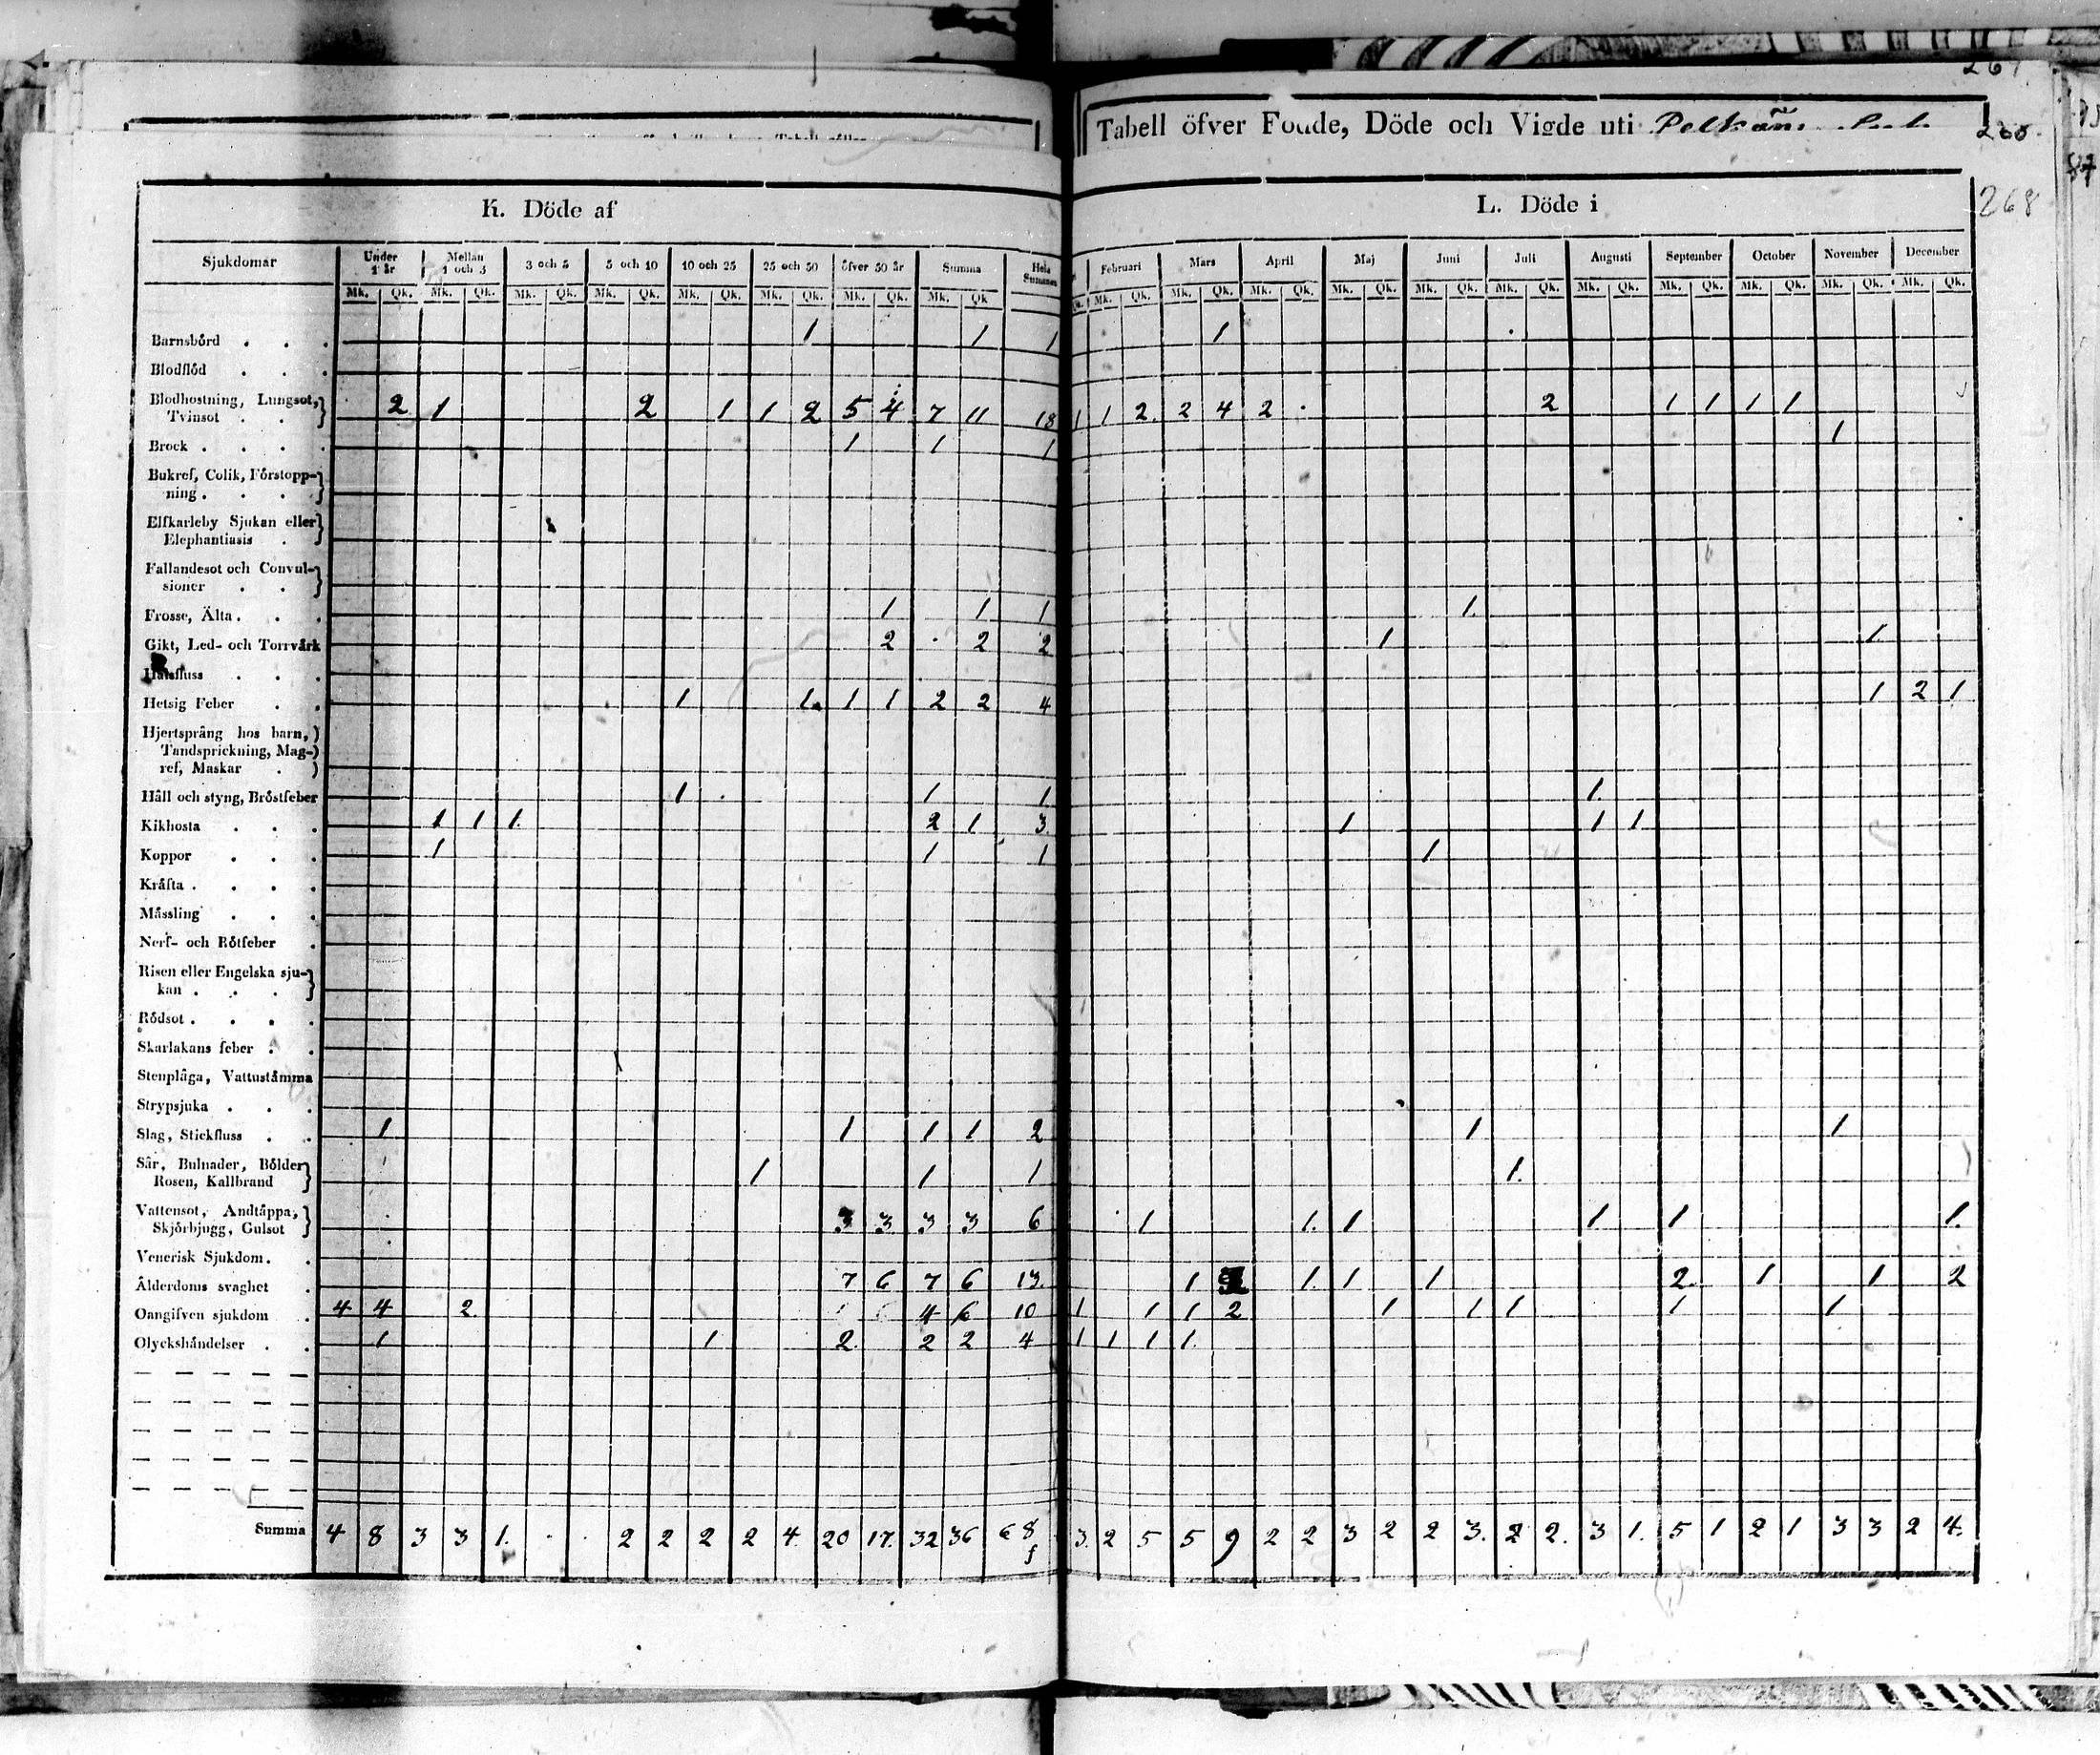 267
Tabell öfver Födde, Döde och Vigde uti Pelkäne
268
K. Döde af
L. Döde i
268
Sjukdomar | Under 1 år | Mellan 1 och 3 | 3 och 5 | 5 och 10 | 10 och 25 | 25 och 50 | öfver 50 år | Summa | Hela Summan | Februari | Mars | April | Maj | Juni | Juli | Augusti | September | October | November | December
Mk. Qk. Mk. Qk. Mk. Qk. Mk. Qk. Mk. Qk. Mk. Qk. Mk. Qk. Mk. Qk Qk. Mk. Qk. Mk. Qk. Mk. Qk. Mk. Qk. Mk. Qk. Mk. Qk. Mk. Qk. Mk. Qk. Mk. Qk. Mk. Qk. Mk. Qk.
Barnsbörd . . . 1 1 1 1
Blodflöd . . .
Blodhostning, Lungsot,
Tvinsot . . 2 1 2 1 1 2 5 4 7 11 18 1 1 2. 2 4 2 2 1 1 1 1
Brock . . . . 1 1 1 1
Bukref, Colik, Förstopp-
ning . . .
Elfkarleby Sjukan eller
Elephantiasis .
Fallandesot och Convul-
sioner . .
Frosse, Älta . . . 1 1 1 1.
Gikt, Led- och Torrvärk 2 2 2 1 1.
Halsfluss . . .
Hetsig Feber . . 1 1. 1 1 2 2 4 1 2 1.
Hjertsprång hos barn,
Tandsprickning, Mag-
ref, Maskar .
Håll och styng, Bröstfeber 1 1 1 1.
Kikhosta . . . 1 1 1. 2 1 3. 1 1 1
Koppor . . . 1 1 1 1
Kräfta . . . .
Mässling . . .
Nerf- och Rötfeber .
Risen eller Engelska sju-
kan . . .
Rödsot . . . .
Skarlakans feber . .
Stenplåga, Vattustämma
Strypsjuka . . .
Slag, Stickfluss . . 1 1 1 1 2 1 1
Sår, Bulnader, Bölder
Rosen, Kallbrand 1 1 1 1.
Vattensot, Andtäppa,
Skjörbjugg, Gulsot 3 3 3 3 6 1 1. 1 1 1 1.
Venerisk Sjukdom . .
Ålderdoms svaghet . 7 6 7 6 13. 1 1. 1 1 2. 1 1 2
Oangifven sjukdom . 4 4 2 4 6 10 1 1 1 2 1 1 1 1 1
Olyckshändelser . . 1 1 2. 2 2 4 1 1 1 1.
Summa 4 8 3 3 1. 2 2 2 2 4. 20 17. 32 36 68 3. 2 5 5 9 2 2 3 2 2 3. 2 2. 3 1. 5 1 2 1 3 3 2 4.